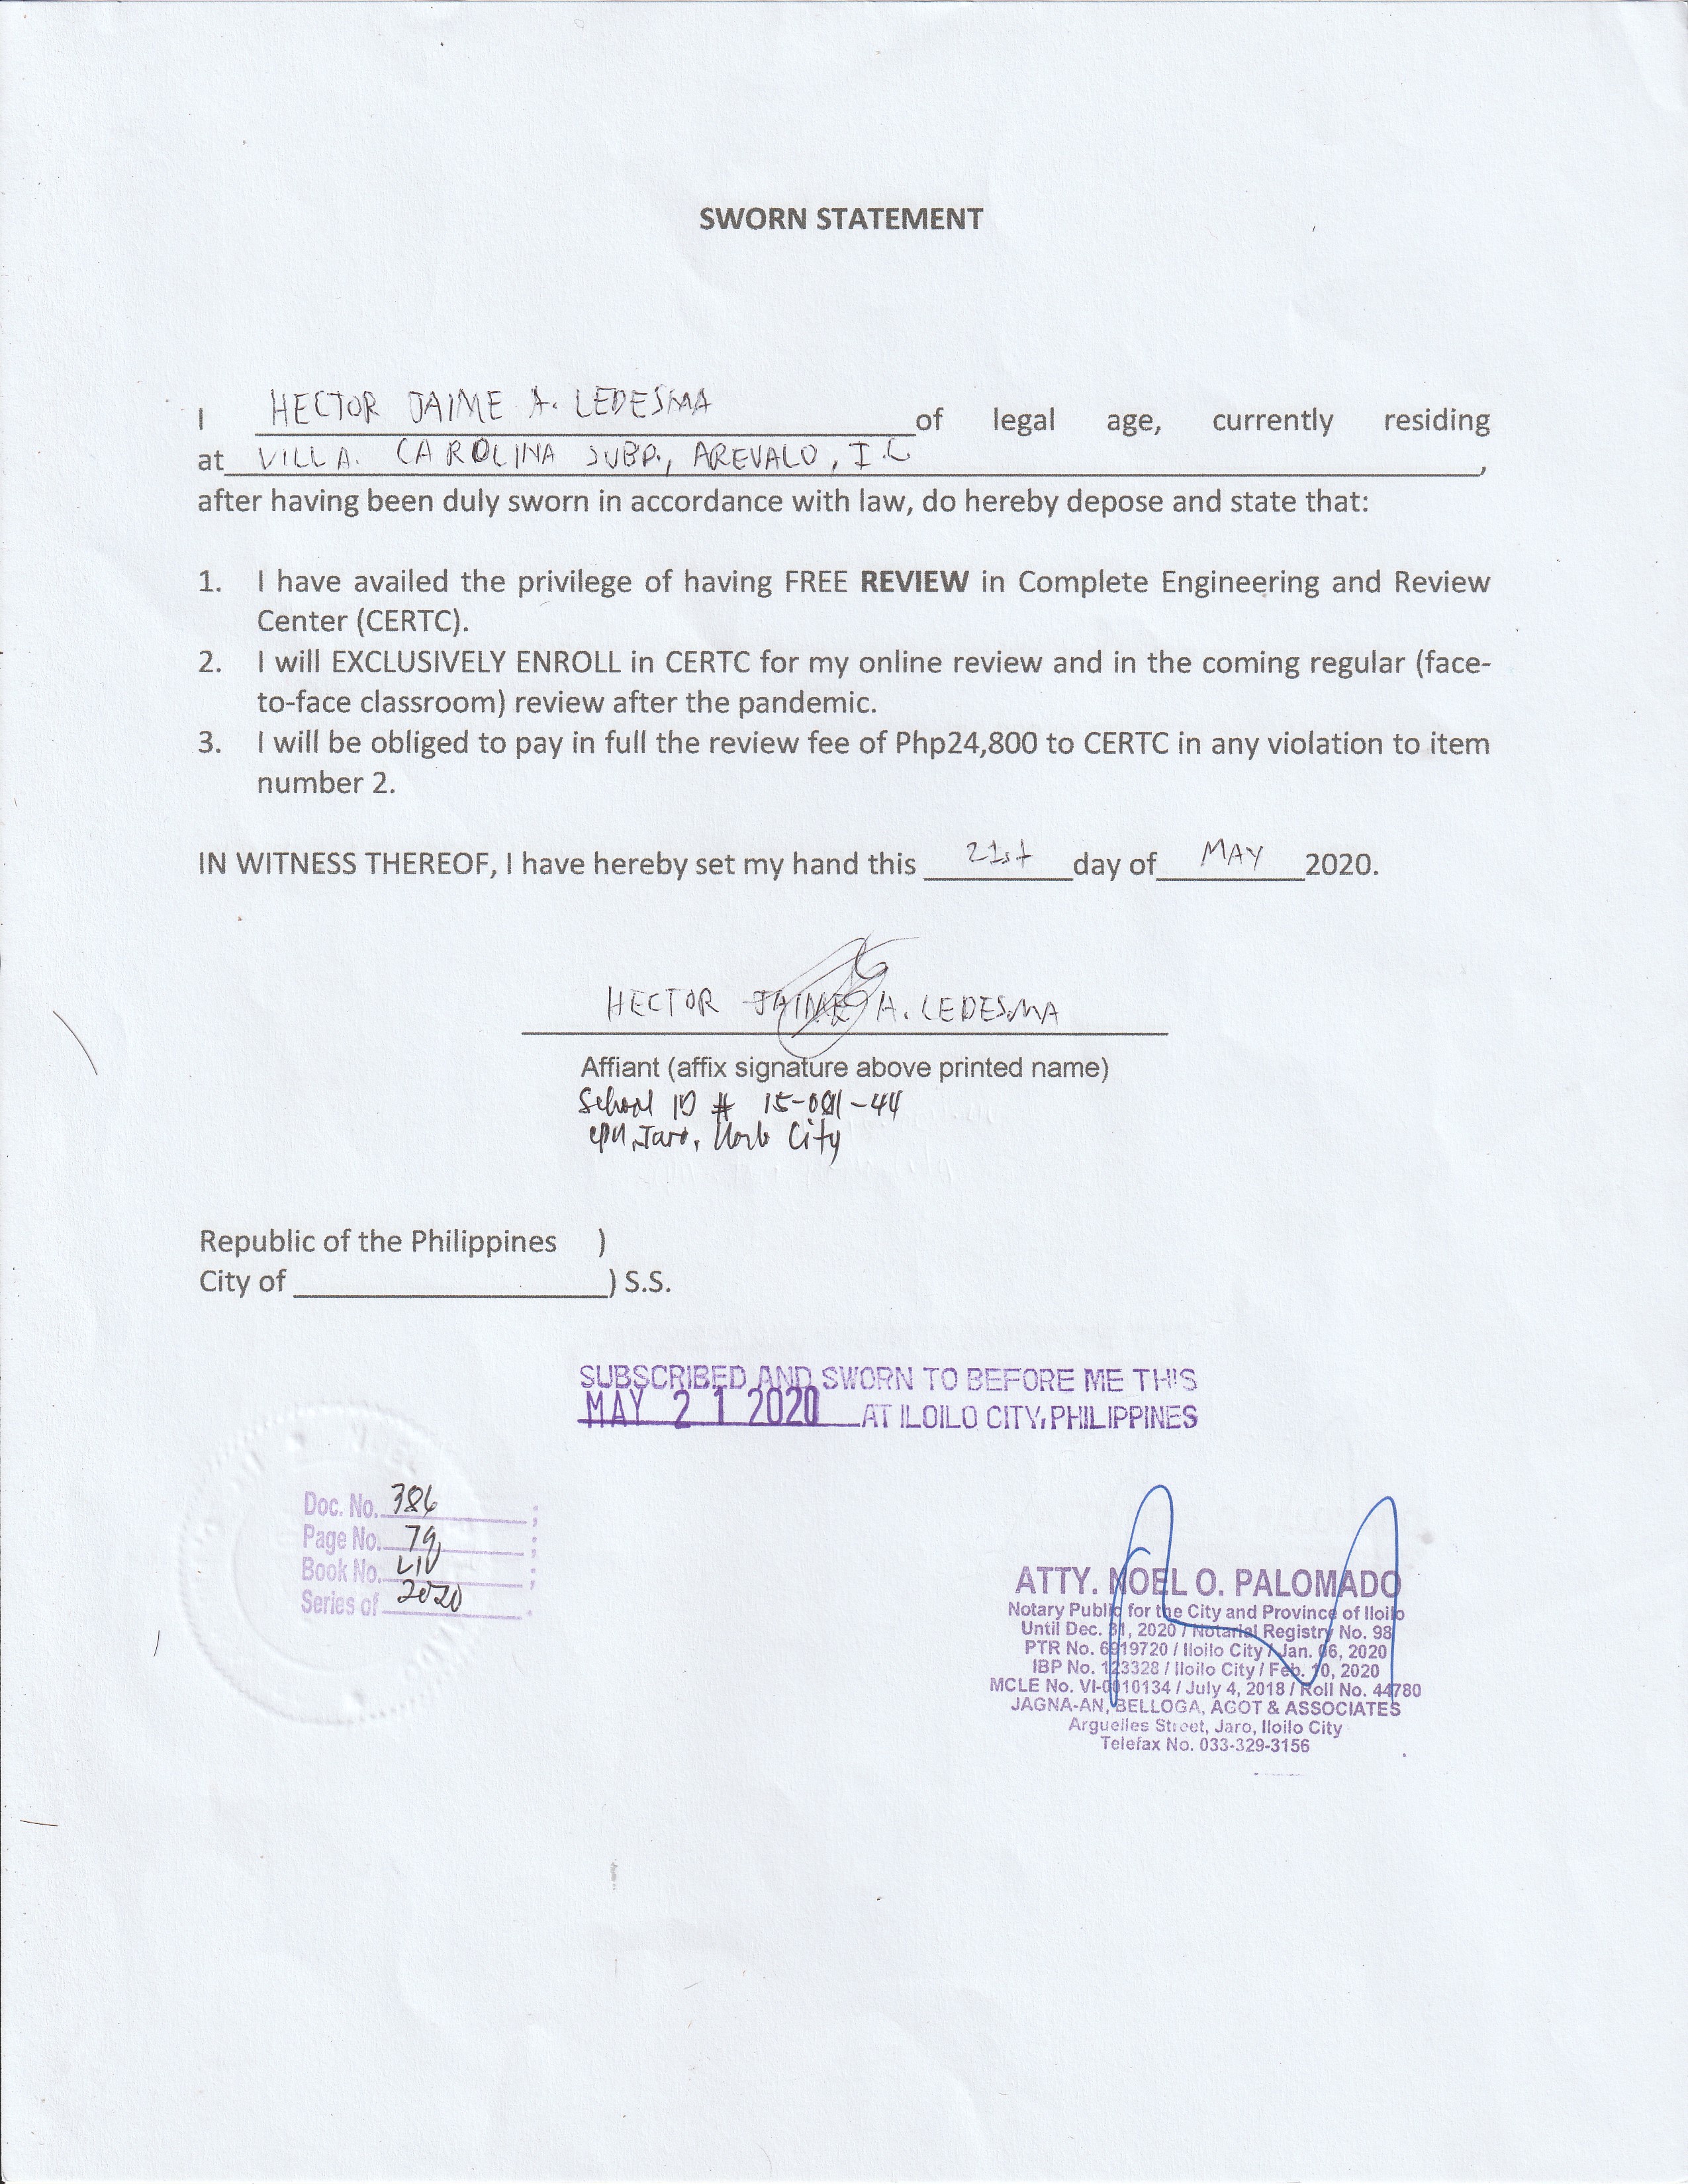 SWORN STATEMENT
I HECTOR JAIME A. LEDESMA of legal age, currently residing
at VILLA. CAROLINA SUBD., AREVALO, I.C ,
after having been duly sworn in accordance with law, do hereby depose and state that:
1. I have availed the privilege of having FREE REVIEW in Complete Engineering and Review
Center (CERTC).
2. I will EXCLUSIVELY ENROLL in CERTC for my online review and in the coming regular (face-
to-face classroom) review after the pandemic.
3. I will be obliged to pay in full the review fee of Php24,800 to CERTC in any violation to item
number 2.
IN WITNESS THEREOF, I have hereby set my hand this 21st day of MAY 2020.
HECTOR JAIME A. LEDESMA
Affiant (affix signature above printed name)
School ID # 15-0 -44
Jaro, Iloilo City
Republic of the Philippines )
City of ) S.S.
SUBSCRIBED AND SWORN TO BEFORE ME THIS
MAY 21 2020 AT ILOILO CITY, PHILIPPINES
Doc. No. 386 ;
Page No. 79 ;
Book No. LIV ;
Series of 2020 .
ATTY. NOEL O. PALOMADO
Notary Public for the City and Province of Iloilo
Until Dec. 31, 2020 / Notarial Registry No. 98
PTR No. 6919720 / Iloilo City / Jan. 06, 2020
IBP No. 123328 / Iloilo City / Feb. 10, 2020
MCLE No. VI-0010134 / July 4, 2018 / Roll No. 44780
JAGNA-AN, BELLOGA, AGOT & ASSOCIATES
Arguelles Street, Jaro, Iloilo City
Telefax No. 033-329-3156